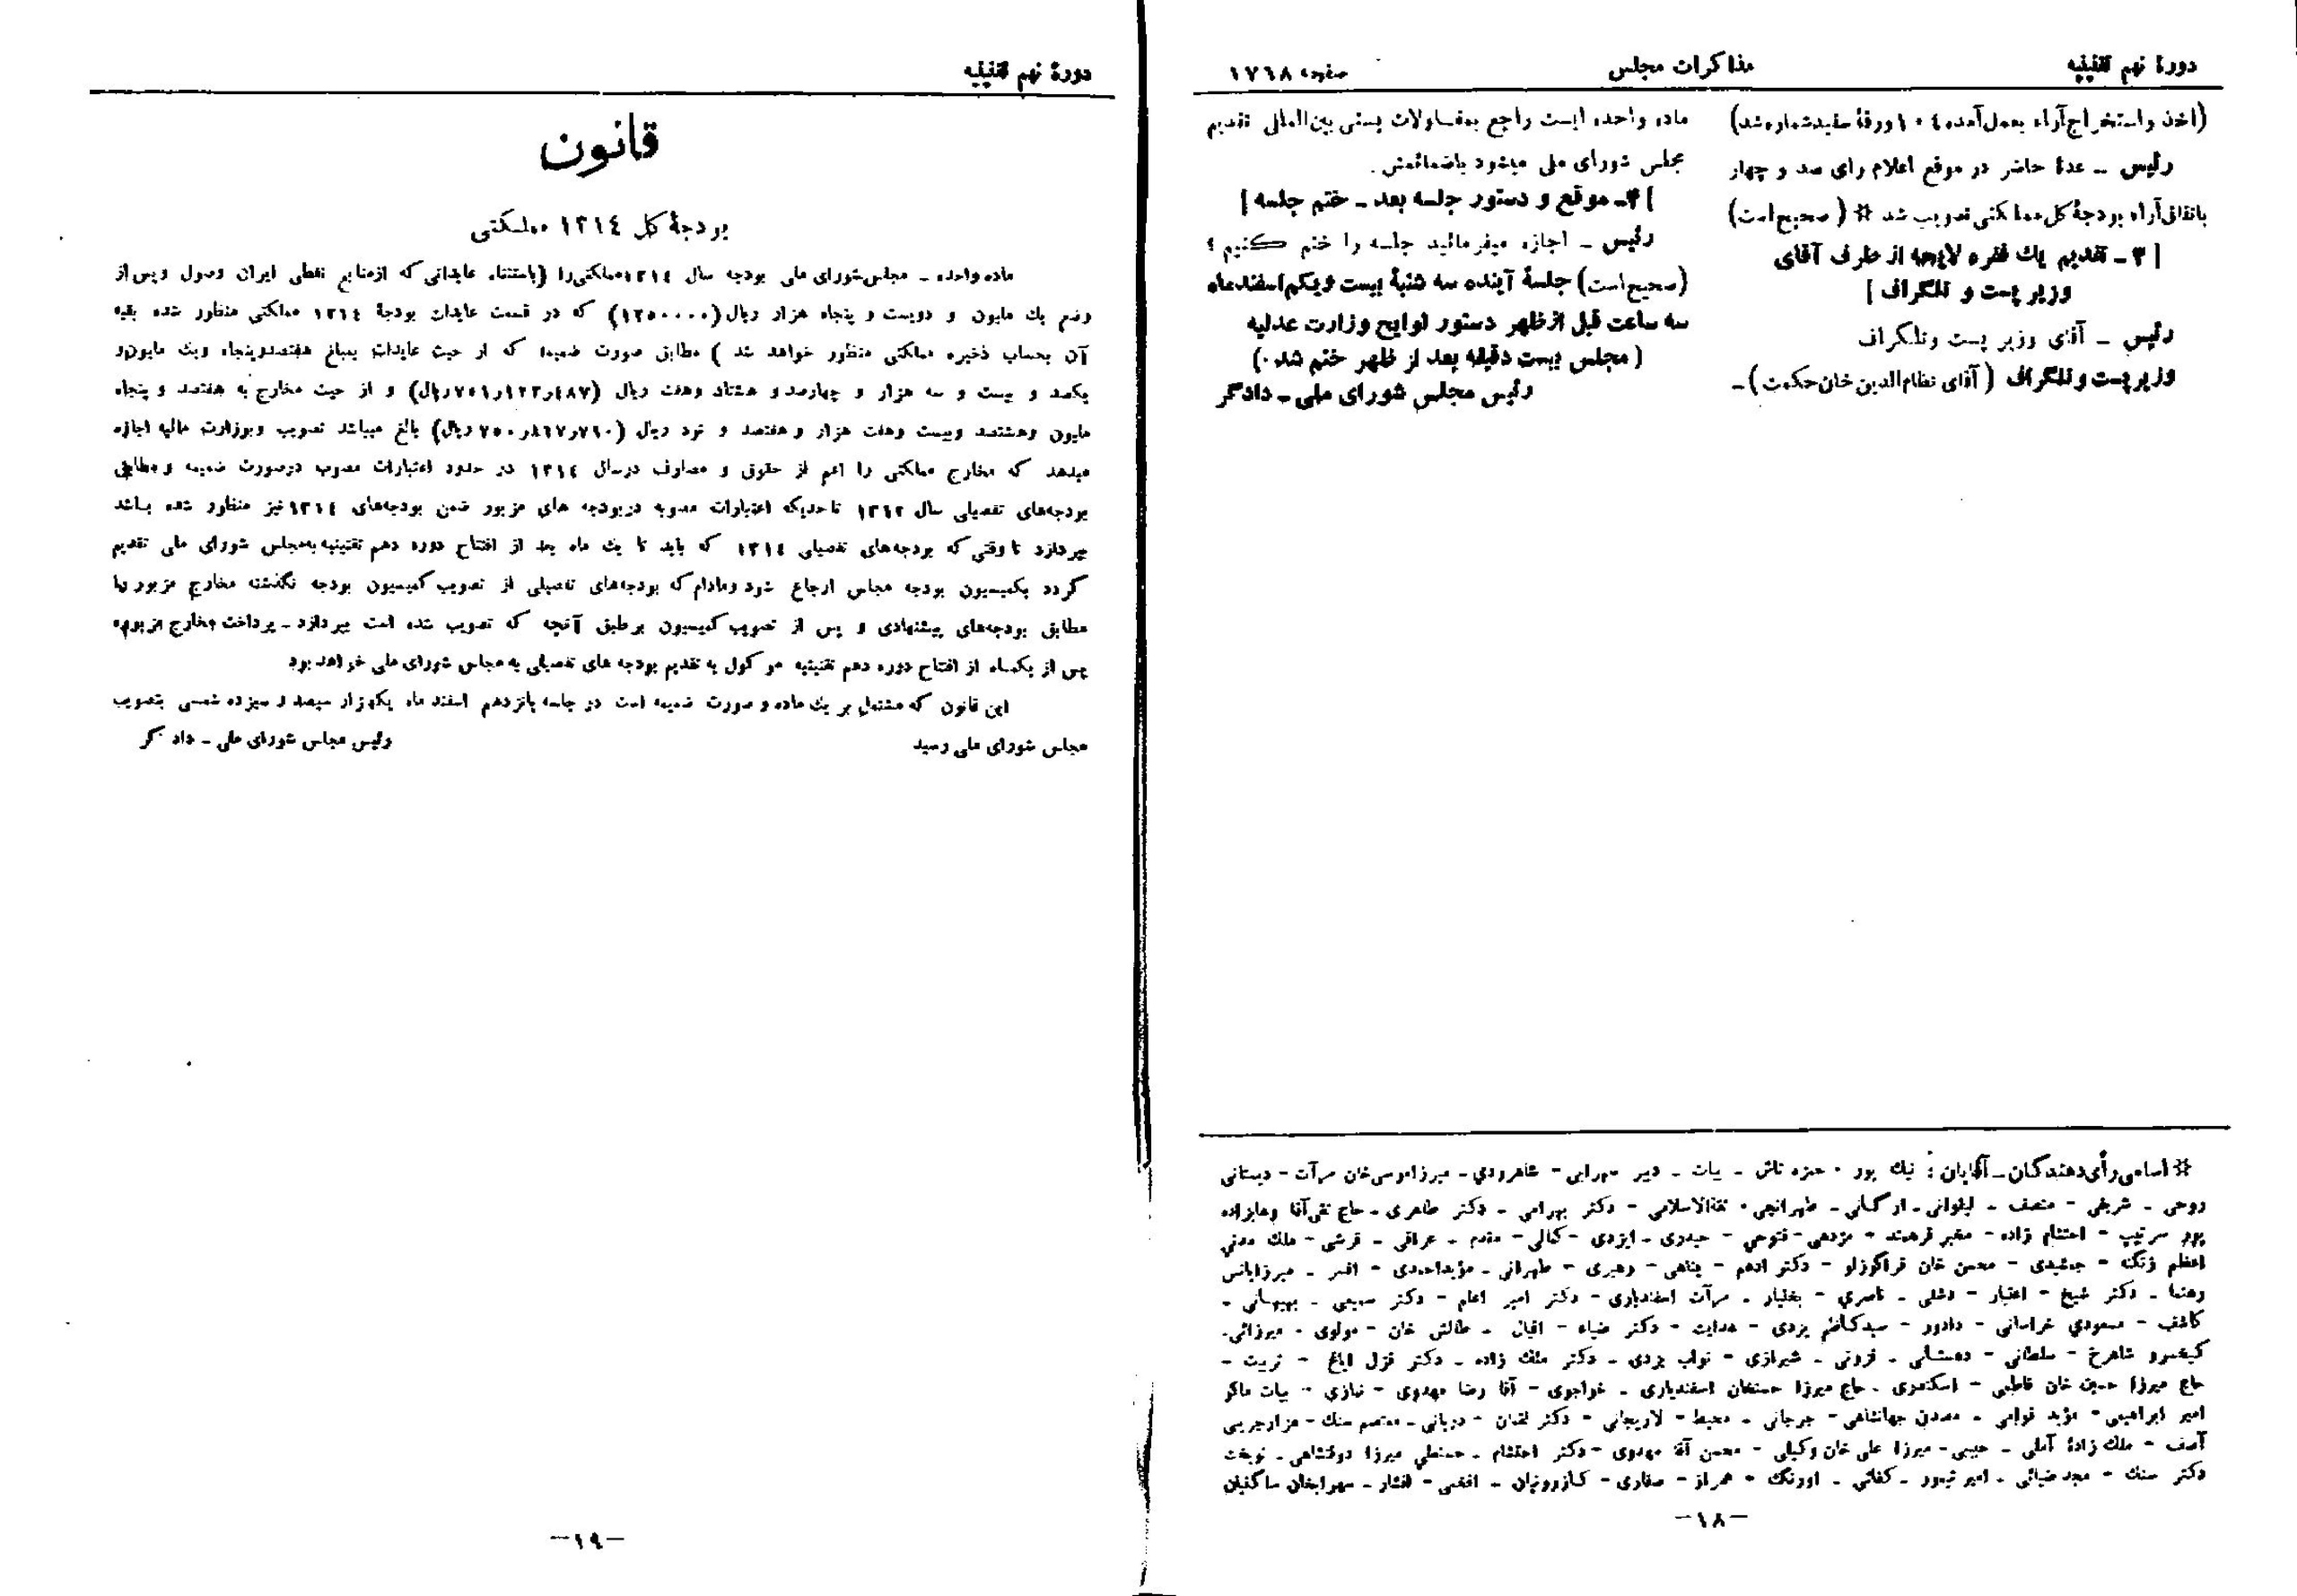 دورهٔ نهم تقنینیه
مذاکرات مجلس
صفحه ۱۷۶۸
(اخذ و استخراج آراء بعمل آمده ۱۰۴ ورقهٔ سفید شماره شد)
رئیس ــ عدهٔ حاضر در موقع اعلام رأی صد و چهار
باتفاق آراء بودجهٔ کل مملکتی تصویب شد * (صحیح است)
[ ۳ ــ تقدیم یك فقره لایحه از طرف آقای
وزیر پست و تلگراف ]
رئیس ــ آقای وزیر پست و تلگراف
وزیر پست و تلگراف (آقای نظام‌الدین خان حکمت) ــ
ماده واحده ایست راجع بمقاولات پستی بین‌المللی تقدیم
مجلس شورای ملی میشود باضمائمش.
[ ۴ ــ موقع و دستور جلسه بعد ــ ختم جلسه ]
رئیس ــ اجازه میفرمائید جلسه را ختم کنیم ؟
(صحیح است) جلسهٔ آینده سه شنبهٔ بیست و یکم اسفندماه
سه ساعت قبل از ظهر دستور لوایح وزارت عدلیه
(مجلس بیست دقیقه بعد از ظهر ختم شد.)
رئیس مجلس شورای ملی ــ دادگر
* اسامی رأی دهندگان ــ آقایان : نیك پور - حمزه تاش - بیات - دبیر سهرابی - شاهرودی - میرزا موسی خان مرآت - دبستانی
روحی - شریفی - منصف - لیقوانی - ارگانی - طهرانچی - ثقةالاسلامی - دکتر بهرامی - دکتر طاهری - حاج تقی آقا وهابزاده
پور سرتیپ - احتشام زاده - مخبر فرهمند - مژدهی - فتوحی - حیدری - ایزدی - کمالی - مقدم - عراقی - قرشی - ملك مدنی
اعظم زنگنه - جمشیدی - محسن خان قراگوزلو - دکتر ادهم - پناهی - رهبری - طهرانی - مؤید احمدی - افسر - میرزایانس
رهنما - دکتر شیخ - اعتبار - دشتی - ناصری - بختیار - مرآت اسفندیاری - دکتر امیر اعلم - دکتر سمیعی - بهبهانی -
کاشف - مسعودی خراسانی - دادور - سید کاظم یزدی - هدایت - دکتر ضیاء - اقبال - طالش خان - مولوی - میرزائی -
کیخسرو شاهرخ - سلطانی - دهستانی - فزونی - شیرازی - نواب یزدی - دکتر ملك زاده - دکتر قزل ایاغ - تربیت -
حاج میرزا حسین خان فاطمی - اسکندری - حاج میرزا حسنخان اسفندیاری - خواجوی - آقا رضا مهدوی - نمازی - بیات ماکو
امیر ابراهیمی - مؤید قوامی - مصدق جهانشاهی - جرجانی - محیط - لاریجانی - دکتر لقمان - دربانی - معتصم سنك - هزارجریبی
آصف - ملك زادهٔ آملی - حبیبی - میرزا علی خان وکیلی - محسن آقا مهدوی - دکتر احتشام - حسنعلی میرزا دولتشاهی - نوبخت
دکتر سنك - مجد ضیائی - امیر تیمور - کفائی - اورنك - همراز - صفاری - کازرونیان - افخمی - افشار - سهرابخان ساگنیان
-۱۸-
دورهٔ نهم تقنینیه
قانون
بودجهٔ کل ۱۳۱۴ مملکتی
ماده واحده ــ مجلس شورای ملی بودجه سال ۱۳۱۴ مملکتی را (باستثناء عایداتی که از منابع نفطی ایران وصول و پس از
وضع یك ملیون و دویست و پنجاه هزار ریال (۱۲۵۰۰۰۰) که در قسمت عایدات بودجهٔ ۱۳۱۴ مملکتی منظور شده بقیه
آن بحساب ذخیره مملکتی منظور خواهد شد) مطابق صورت ضمیمه که از حیث عایدات بمبلغ هفتصد و پنجاه و یك ملیون و
یکصد و بیست و سه هزار و چهارصد و هشتاد و هفت ریال (۷۵۱ر۱۲۳ر۴۸۷ ریال) و از حیث مخارج به هفتصد و پنجاه
ملیون و هشتصد و بیست و هفت هزار و هفتصد و نود ریال (۷۵۰ر۸۲۷ر۷۹۰ ریال) بالغ میباشد تصویب و بوزارت مالیه اجازه
میدهد که مخارج مملکتی را اعم از حقوق و مصارف در سال ۱۳۱۴ در حدود اعتبارات مصوب در صورت ضمیمه و مطابق
بودجه‌های تفصیلی سال ۱۳۱۳ تا حدیکه اعتبارات مصوبه در بودجه های مزبور ضمن بودجه‌های ۱۳۱۴ نیز منظور شده باشد
بپردازد تا وقتی که بودجه‌های تفصیلی ۱۳۱۴ که باید تا یك ماه بعد از افتتاح دوره دهم تقنینیه به مجلس شورای ملی تقدیم
گردد بکمیسیون بودجه مجلس ارجاع شود و مادام که بودجه‌های تفصیلی از تصویب کمیسیون بودجه نگذشته مخارج مزبور را
مطابق بودجه‌های پیشنهادی و پس از تصویب کمیسیون بر طبق آنچه که تصویب شده است بپردازد ــ پرداخت مخارج مزبوره
پس از یکماه از افتتاح دوره دهم تقنینیه موکول به تقدیم بودجه های تفصیلی به مجلس شورای ملی خواهد بود
این قانون که مشتمل بر یك ماده و صورت ضمیمه است در جلسه پانزدهم اسفند ماه یکهزار سیصد و سیزده شمسی بتصویب
مجلس شورای ملی رسید
رئیس مجلس شورای ملی ــ دادگر
-۱۹-